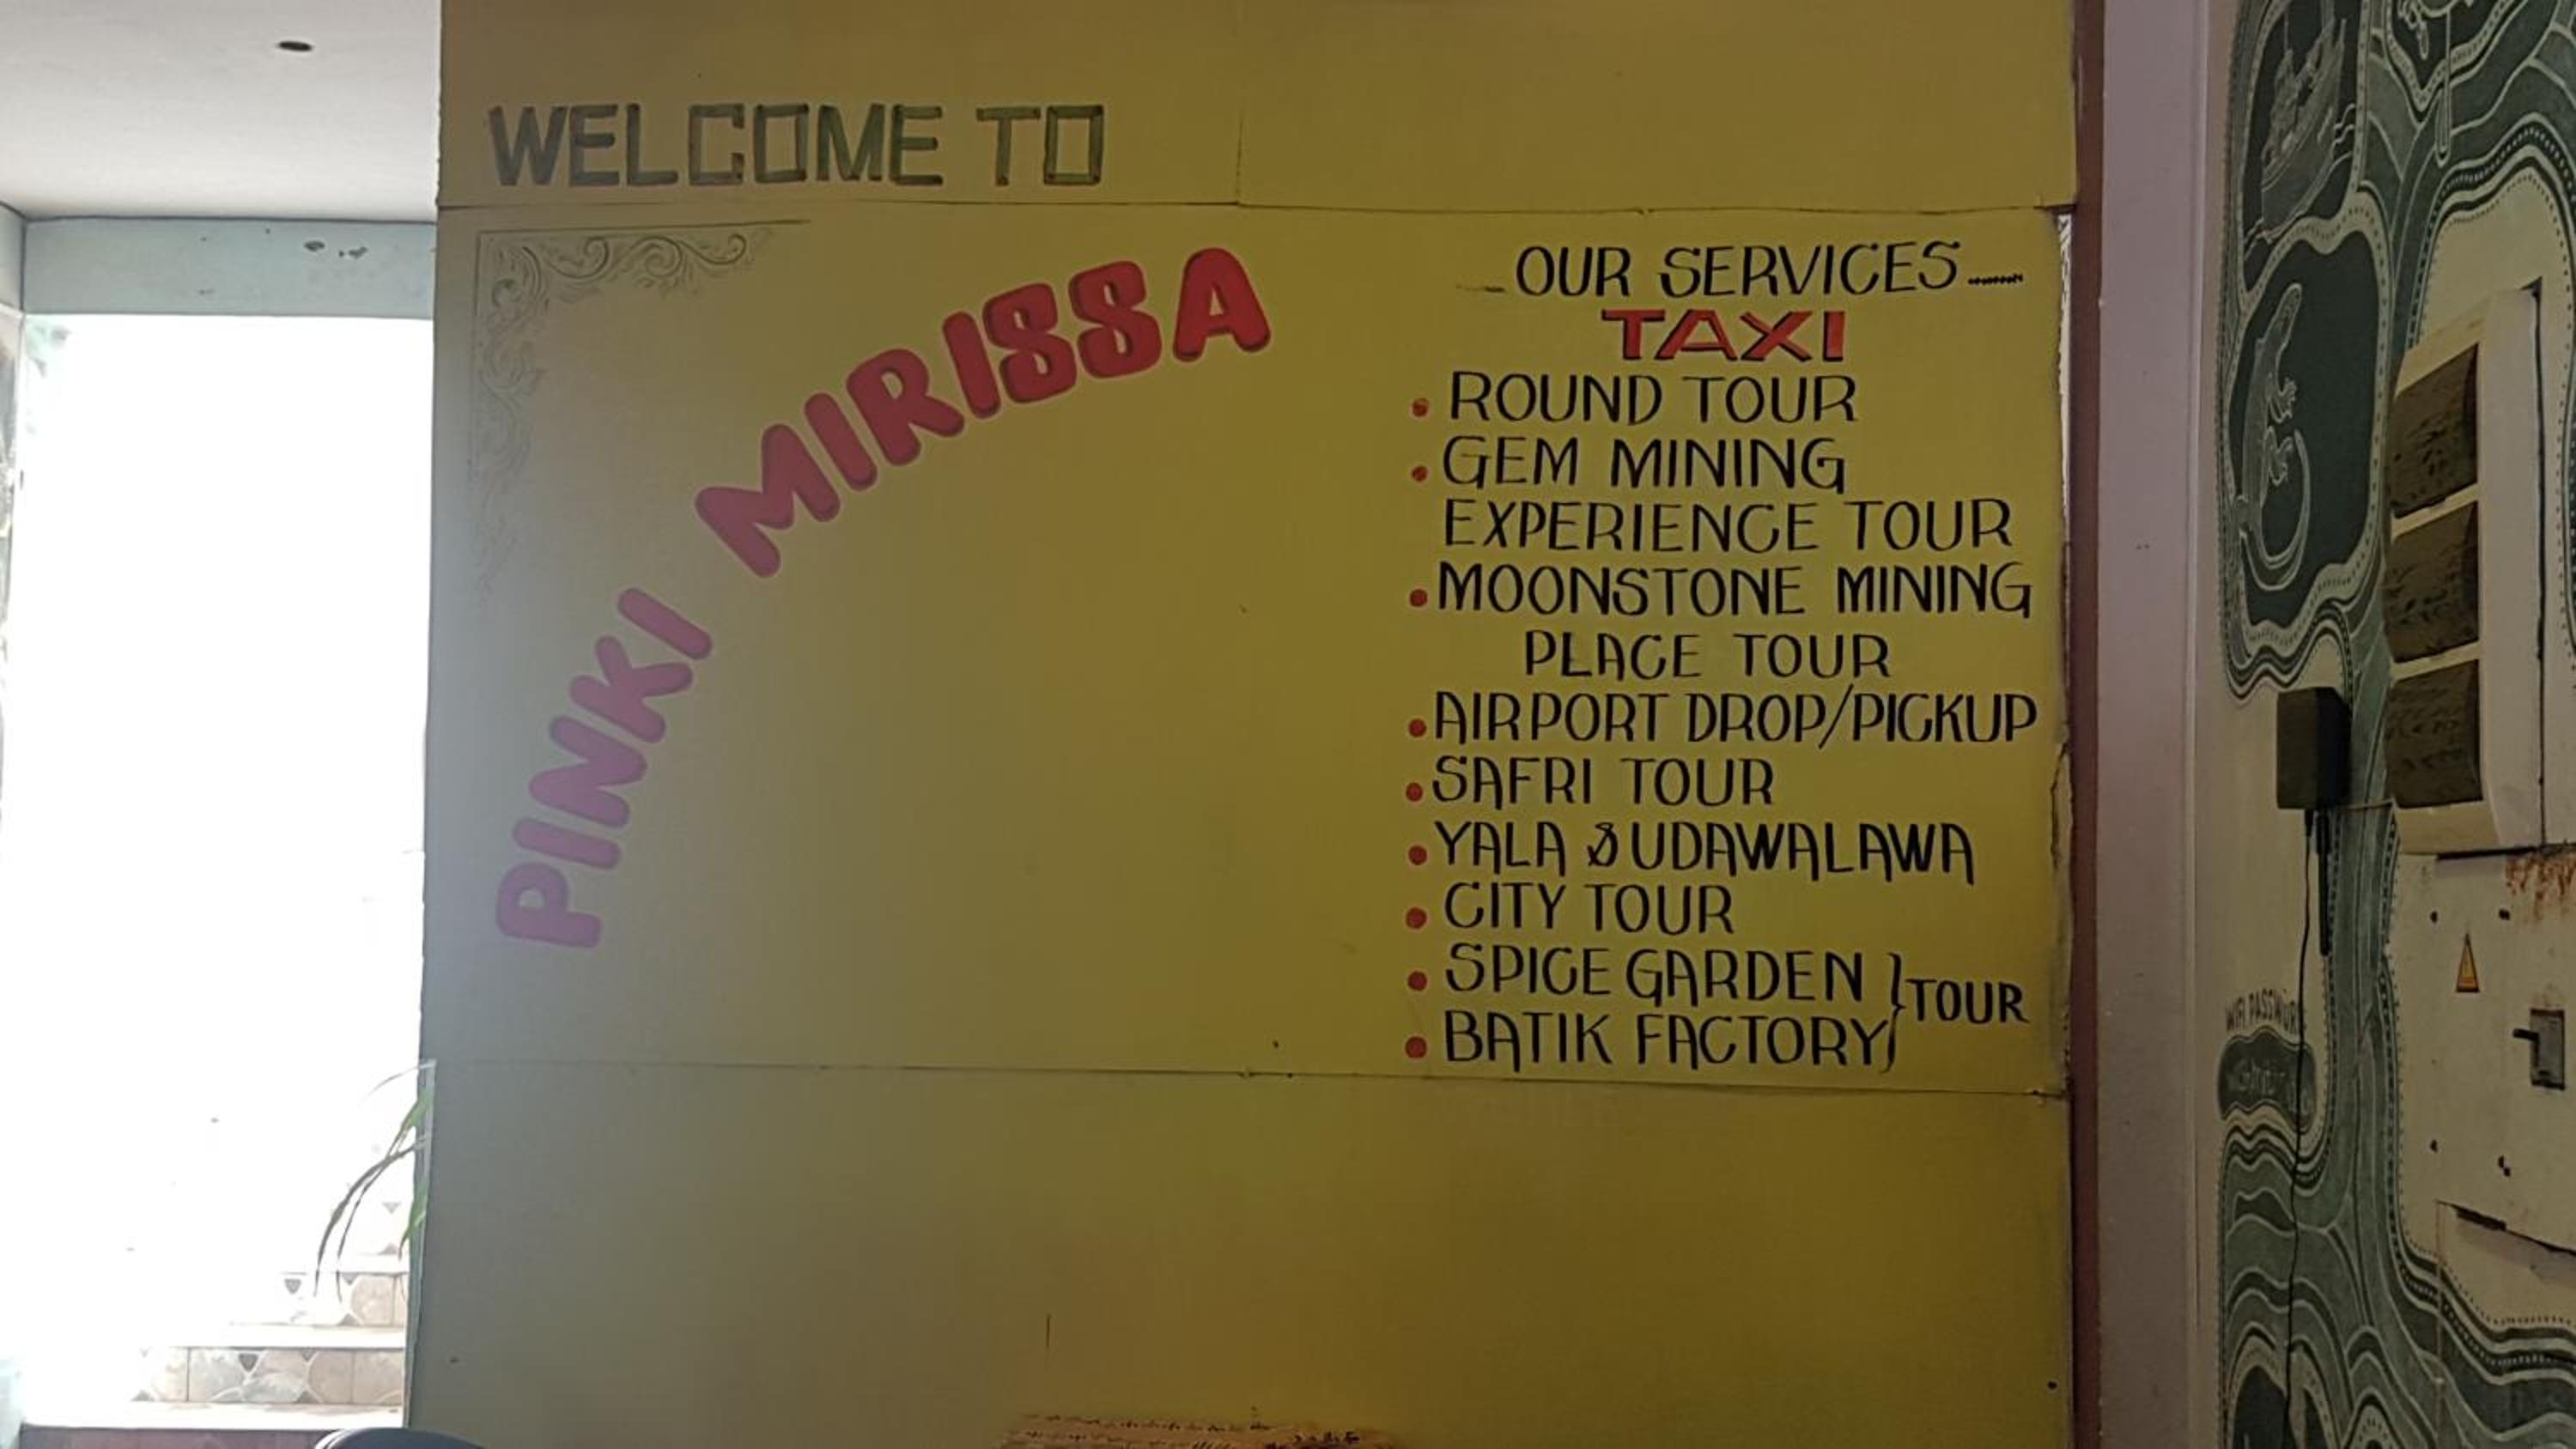 WELCOME TO
PINKI MIRISSA
OUR SERVICES
TAXI
• ROUND TOUR
• GEM MINING
EXPERIENCE TOUR
• MOONSTONE MINING
PLACE TOUR
• AIRPORT DROP/PICKUP
• SAFRI TOUR
• YALA & UDAWALAWA
• CITY TOUR
• SPICE GARDEN } TOUR
• BATIK FACTORY
WIFI PASSWOR